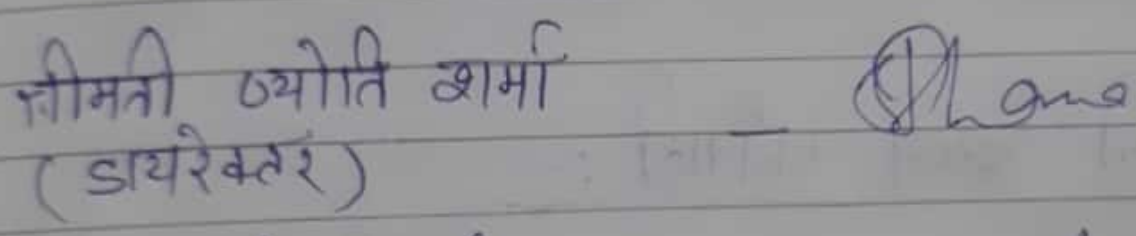 श्रीमती ज्योति शर्मा
(डायरेक्टर)